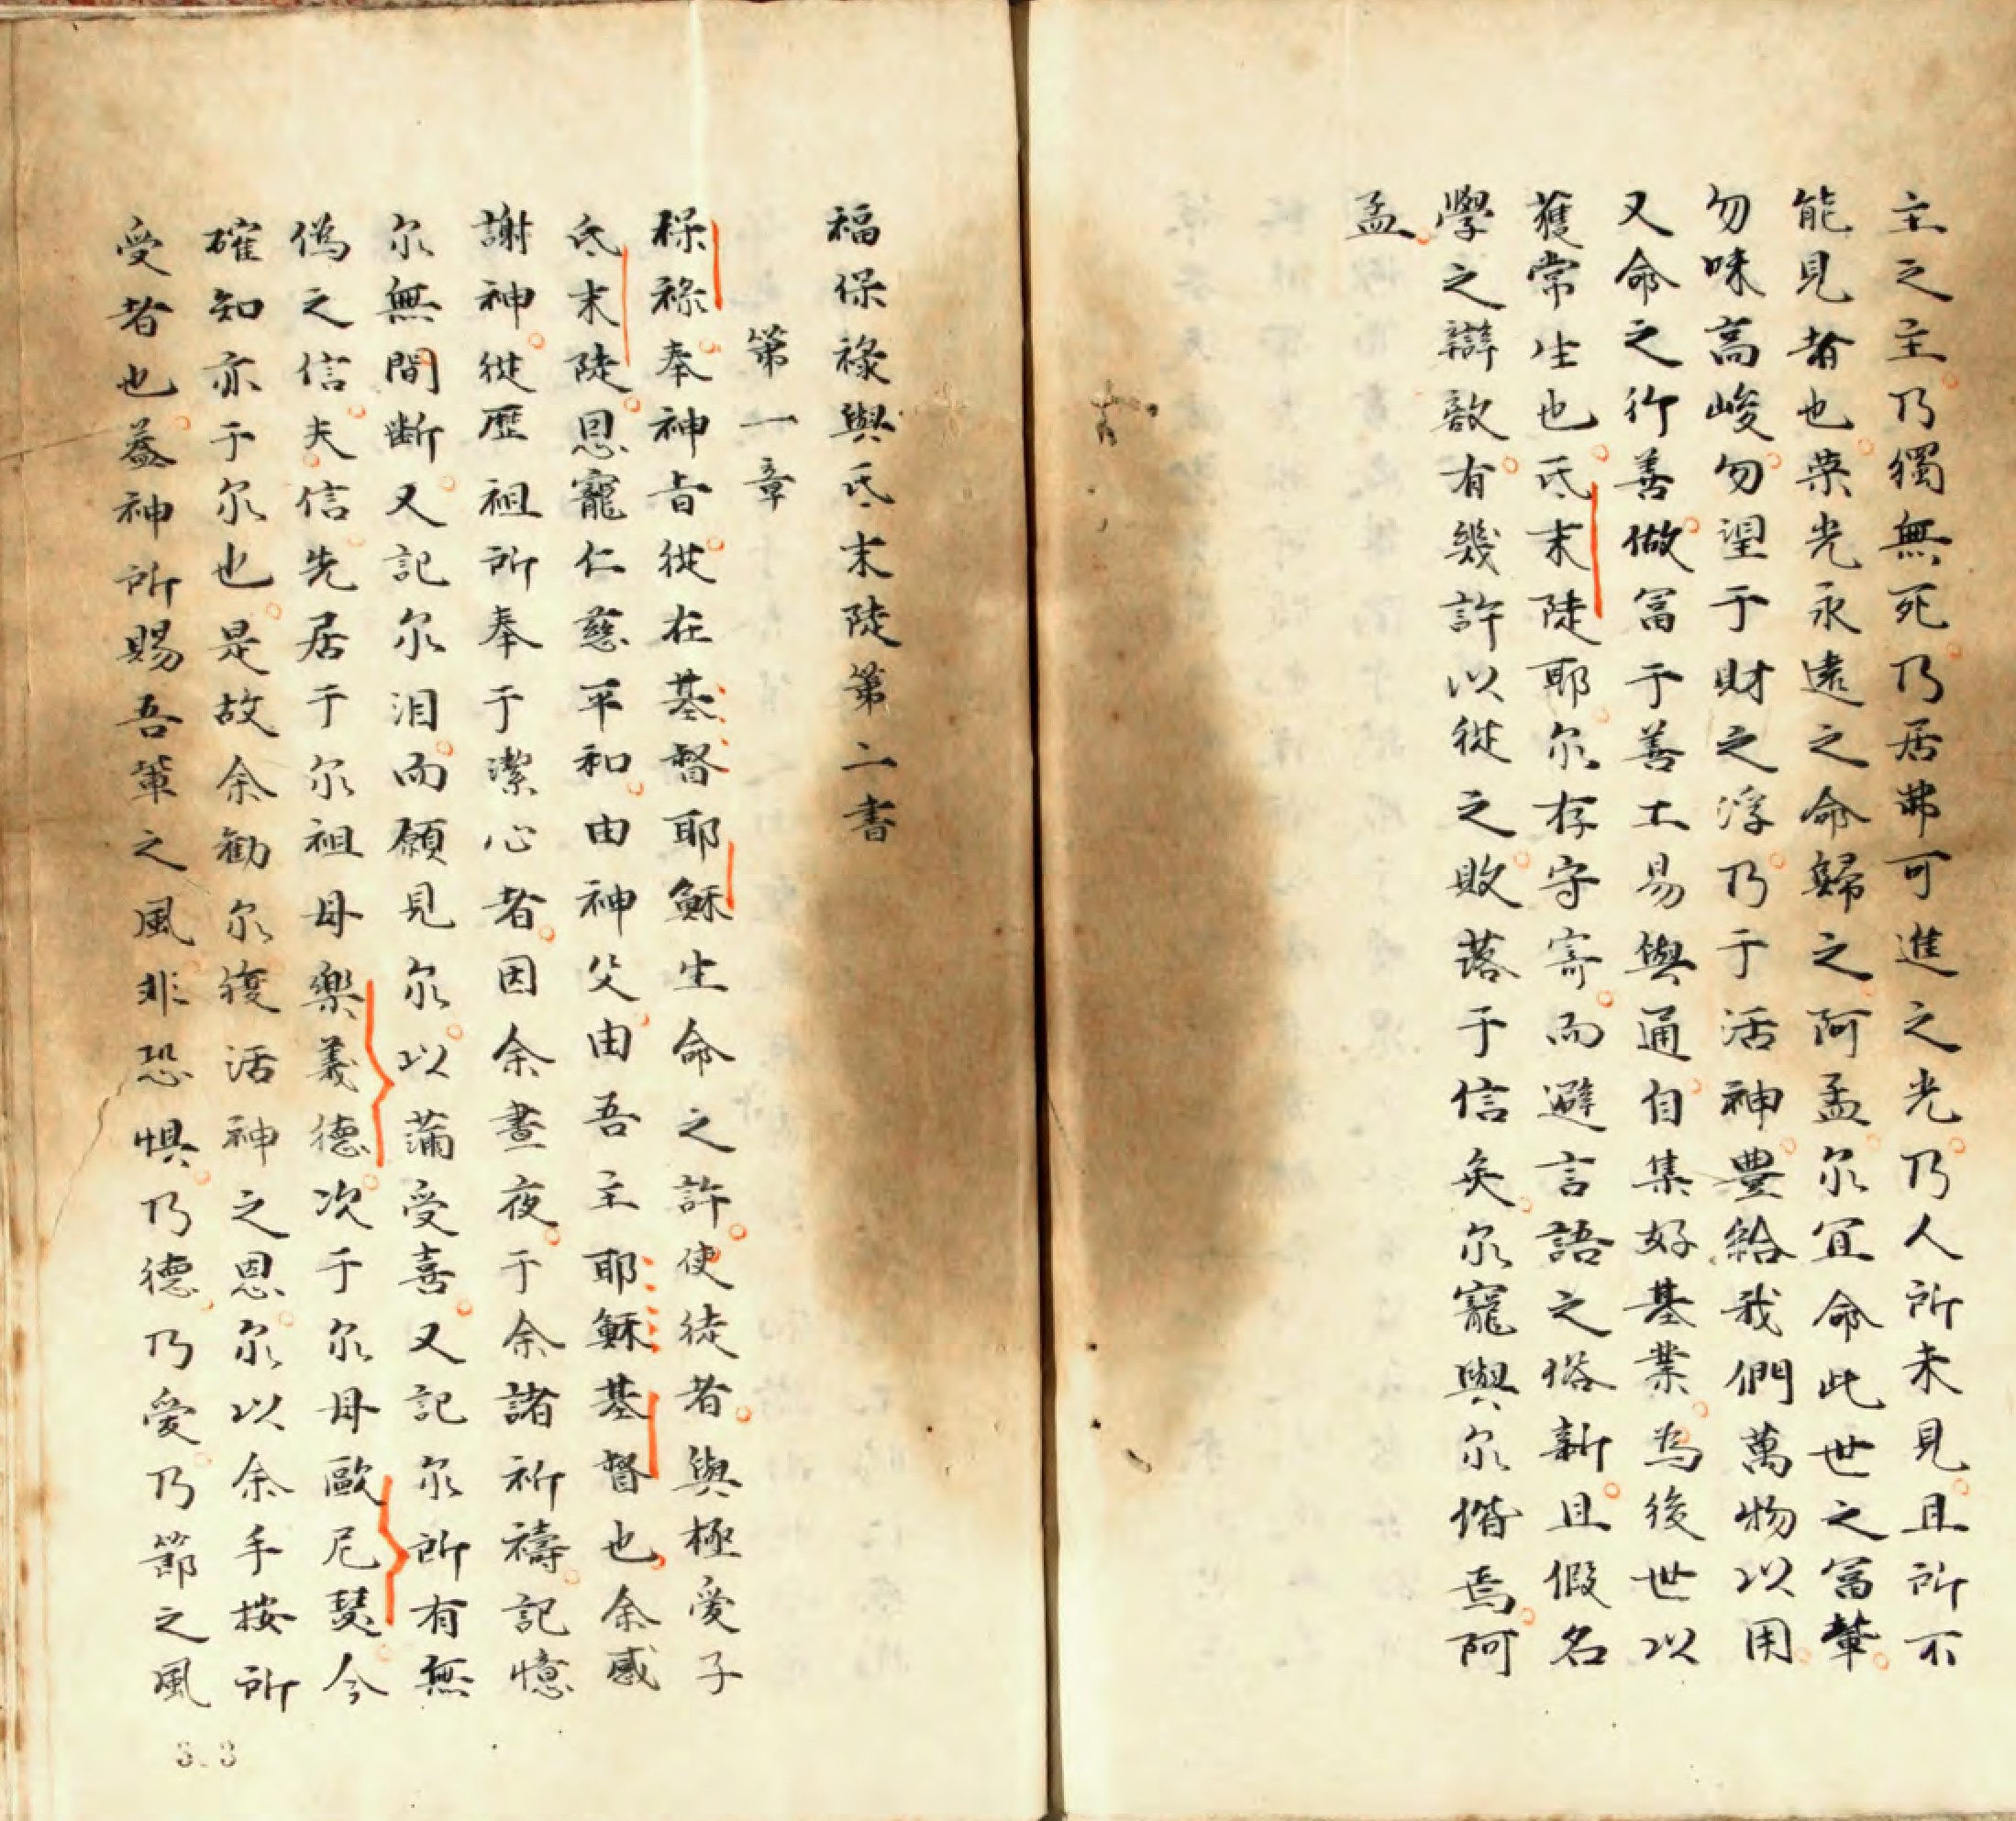 主之主乃獨無死乃居弗可進之光乃人所未見且所不
能見者也榮光永遠之命歸之阿孟尔宜命此世之富輩
勿味高峻勿望于財之浮乃于活神豐給我們萬物以用
又命之行善做富于善工易與通自集好基業為後世以
獲常生也氐末陡耶尔存守寄而避言語之俗新且假名
學之辯敵有幾許以從之敗落于信矣尔寵與尔偕焉阿
孟
福保祿與氐末陡第二書
第一章
保祿奉神旨從在基督耶穌生命之許使徒者與極愛子
氐末陡恩寵仁慈平和由神父由吾主耶穌基督也余感
謝神從歷祖所奉于潔心者因余晝夜于余諸祈禱記憶
尔無間断又記尔泪而願見尔以蒲受喜又記尔所有無
偽之信夫信先居于尔祖母樂義德次于尔母歐尼瑟今
確知亦于尔也是故余勸尔復活神之恩尔以余手按所
受者也葢神所賜吾輩之風非恐惧乃德乃愛乃節之風